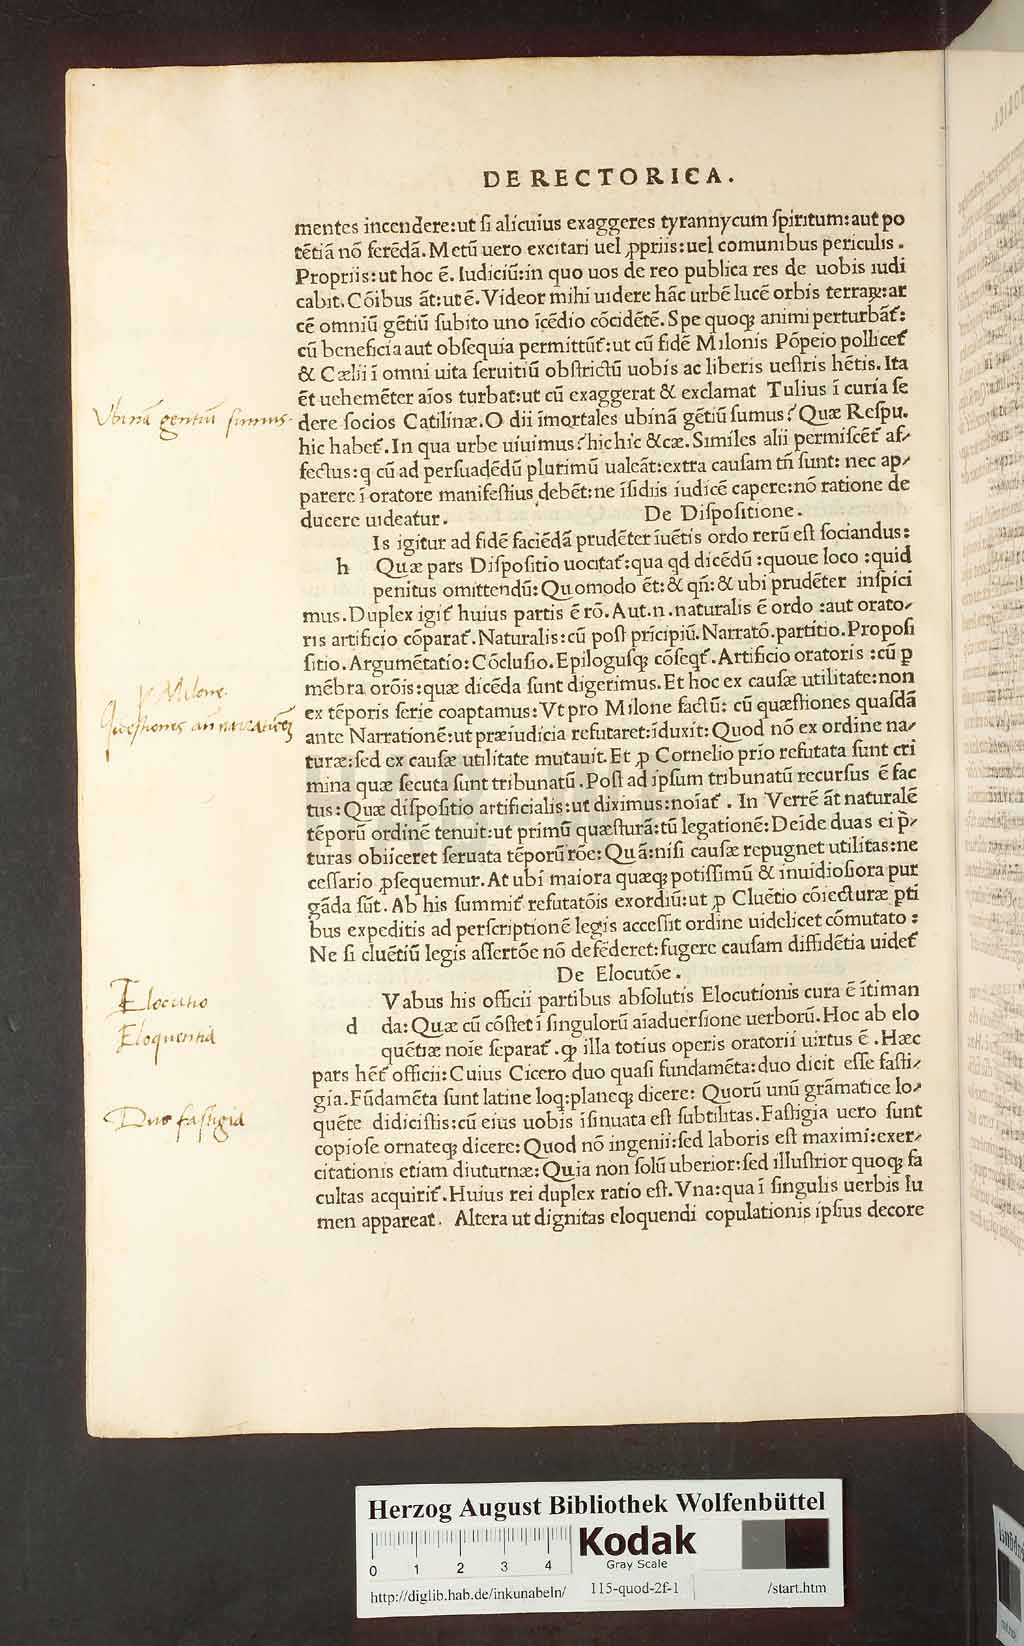 DE RECTORICA.
mentes incendere:ut ſi alicuius exaggeres tyrannycum ſpiritum:aut po
tētiā nō ferēdā.Metū uero excitari uel ꝓpriis:uel comunibus periculis.
Propriis:ut hoc ē.Iudiciū:in quo uos de reo publica res de uobis iudi
cabit.Cōibus āt:ut ē.Videor mihi uidere hāc urbē lucē orbis terraꝝ:ar
cē omniū gētiū ſubito uno īcēdio cōcidētē.Spe quoqꝫ animi perturbāt̄:
cū beneficia aut obſequia permittūt̄:ut cū fidē Milonis Pōpeio pollicet̄
& Cælii ī omni uita ſeruitiū obſtrictū uobis ac liberis ueſtris hētis.Ita
ēt uehemēter aīos turbat:ut cū exaggerat & exclamat Tulius ī curia ſe
Vbinā gentiū sumus.
dere ſocios Catilinæ.O dii īmortales ubinā gētiū ſumus? Quæ Reſpu.
hic habet̄.In qua urbe uiuimus? hic hic &cæ.Similes alii permiſcēt̄ af-
fectus:q cū ad perſuadēdū plurimū ualeāt:extra cauſam tn̄ ſunt: nec ap-
parere ī oratore manifeſtius debēt:ne īſidiis iudicē capere:nō ratione de
ducere uideatur. De Diſpoſitione.
Is igitur ad fidē faciēdā prudēter īuētis ordo rerū eſt ſociandus:
h Quæ pars Diſpoſitio uocitat̄:qua qd dicēdū :quoue loco :quid
penitus omittendū:Quomodo ēt:& qn̄:& ubi prudēter inſpici
mus.Duplex igit̄ huius partis ē rō.Aut.n.naturalis ē ordo :aut orato-
ris artificio cōparat̄.Naturalis:cū poſt prīcipiū.Narratō.partitio.Propoſi
ſitio.Argumētatio:Cōcluſio.Epiloguſqꝫ cōſeqt̄.Artificio oratoris :cū ꝑ
p Milone.
mēbra orōis:quæ dicēda ſunt digerimus.Et hoc ex cauſæ utilitate:non
Questiones an̄ narrationē
ex tēporis ſerie coaptamus:Vt pro Milone factū: cū quæſtiones quaſdā
ante Narrationē:ut præiudicia refutaret:īduxit:Quod nō ex ordine na-
turæ:ſed ex cauſæ utilitate mutauit.Et ꝓ Cornelio prio refutata ſunt cri
mina quæ ſecuta ſunt tribunatū.Poſt ad ipſum tribunatū recurſus ē fac
tus:Quæ diſpoſitio artificialis:ut diximus:noīat̄. In Verrē āt naturalē
tēporū ordinē tenuit:ut primū quæſturā:tū legationē:Deīde duas ei p̄-
turas obiiceret ſeruata tēporū rōe:Quā:niſi cauſæ repugnet utilitas:ne
ceſſario ꝓſequemur.At ubi maiora quæqꝫ potiſſimū & inuidioſiora pur
gāda ſūt.Ab his ſummit̄ refutatōis exordiū:ut ꝓ Cluētio cōiecturæ ꝑti
bus expeditis ad perſcriptionē legis acceſſit ordine uidelicet cōmutato:
Ne ſi cluētiū legis aſſertōe nō defēderet:fugere cauſam diffidētia uidet̄
De Elocutōe.
Elocutio
Vabus his officii partibus abſolutis Elocutionis cura ē ītiman
Eloquentia
d da:Quæ cū cōſtet ī ſingulorū aīaduerſione uerborū.Hoc ab elo
quētiæ noīe ſeparat̄.qꝫ illa totius operis oratorii uirtus ē.Hæc
pars hēt̄ officii:Cuius Cicero duo quaſi fundamēta:duo dicit eſſe faſti-
gia.Fūdamēta ſunt latine loq:planeqꝫ dicere: Quorū unū grāmatice lo-
Duo fastigia
quēte didiciſtis:cū eius uobis īſinuata eſt ſubtilitas.Faſtigia uero ſunt
copioſe ornateqꝫ dicere:Quod nō ingenii:ſed laboris eſt maximi:exer-
citationis etiam diuturnæ:Quia non ſolū uberior:ſed illuſtrior quoqꝫ fa
cultas acquirit̄.Huius rei duplex ratio eſt.Vna:qua ī ſingulis uerbis lu
men appareat. Altera ut dignitas eloquendi copulationis ipſius decore
Herzog August Bibliothek Wolfenbüttel
0 1 2 3 4
Kodak
Gray Scale
http://diglib.hab.de/inkunabeln/ 115-quod-2f-1 /start.htm